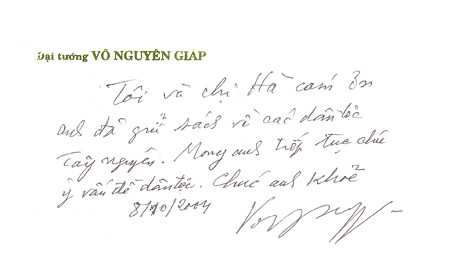 Đại tướng VÕ NGUYÊN GIÁP
Tôi và chị Hà cám ơn
anh đã gửi sách về các dân tộc
Tây nguyên. Mong anh tiếp tục chú
ý vấn đề dân tộc. Chúc anh khoẻ
8/10/2004